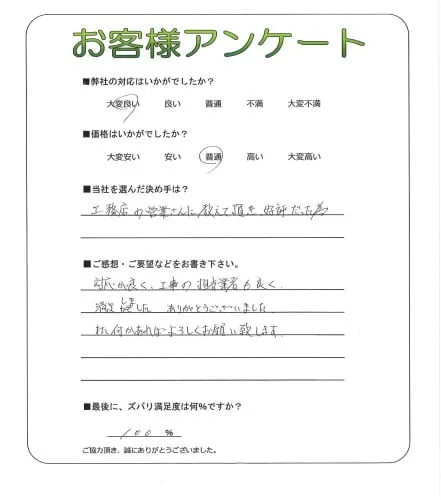 お客様アンケート
■弊社の対応はいかがでしたか？
大変良い 良い 普通 不満 大変不満
■価格はいかがでしたか？
大変安い 安い 普通 高い 大変高い
■当社を選んだ決め手は？
工務店の営業さんに教えて頂き 好評だった為
■ご感想・ご要望などをお書き下さい。
対応が良く、工事の担当業者も良く、
満足しました ありがとうございました
また何かあればよろしくお願い致します。
■最後に、ズバリ満足度は何%ですか？
100 %
ご協力頂き、誠にありがとうございました。